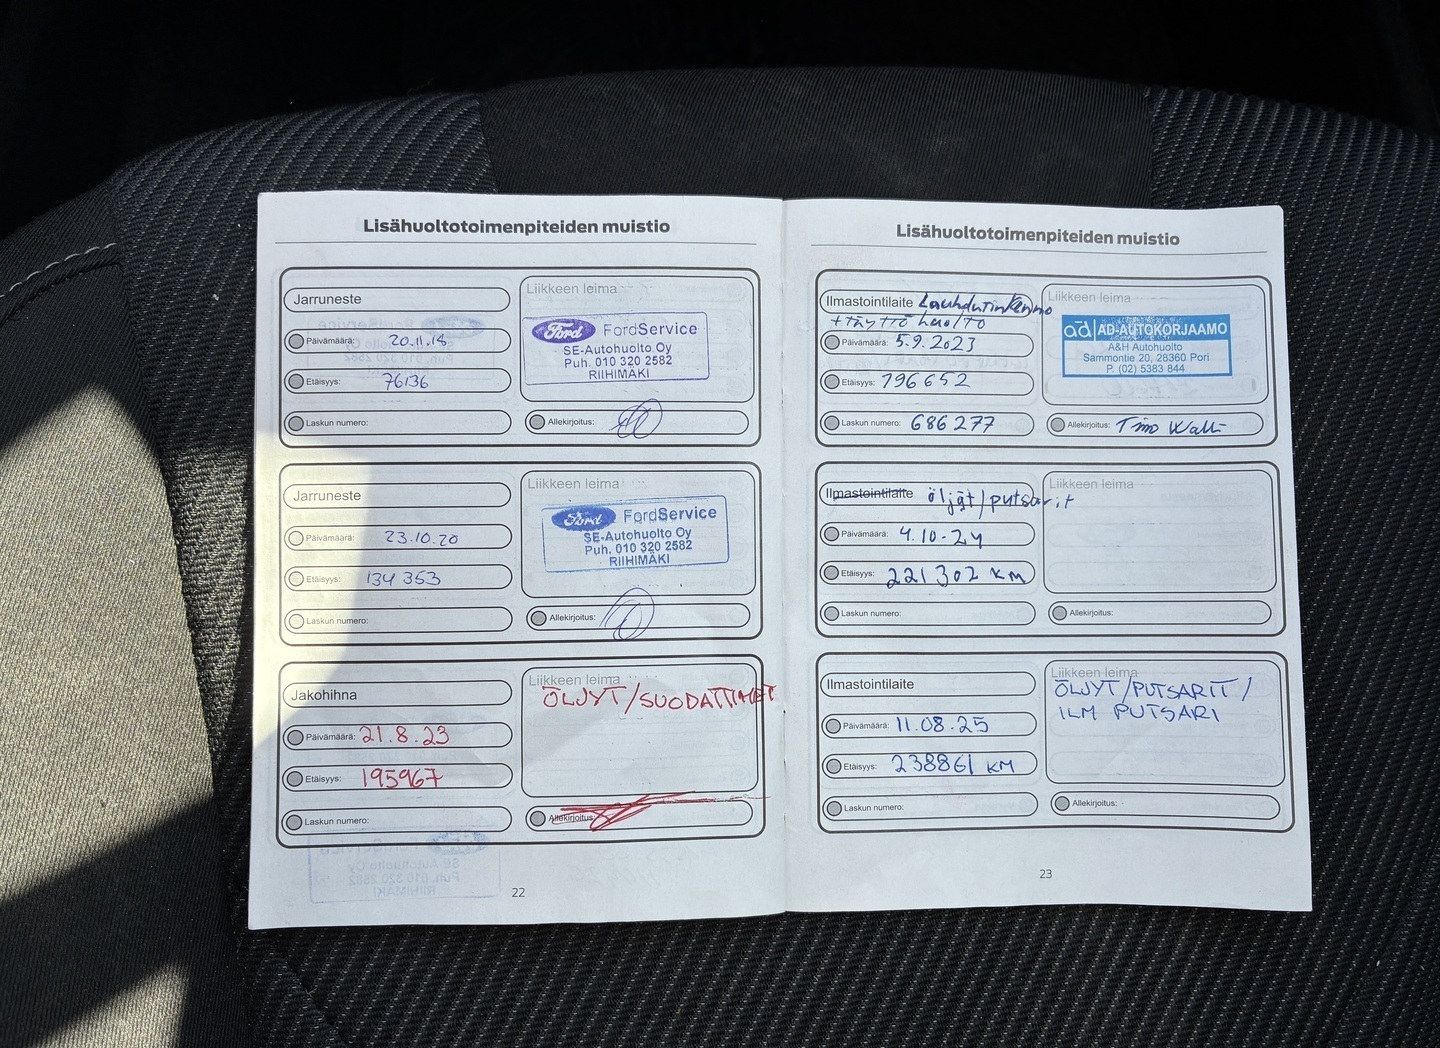 Lisähuoltotoimenpiteiden muistio
Jarruneste
Päivämäärä: 20.11.18
Etäisyys: 76136
Laskun numero:
Liikkeen leima
Ford FordService
SE-Autohuolto Oy
Puh. 010 320 2582
RIIHIMÄKI
Allekirjoitus:
Jarruneste
Päivämäärä: 23.10.20
Etäisyys: 134 353
Laskun numero:
Liikkeen leima
Ford FordService
SE-Autohuolto Oy
Puh. 010 320 2582
RIIHIMÄKI
Allekirjoitus:
Jakohihna
Päivämäärä: 21.8.23
Etäisyys: 195967
Laskun numero:
Liikkeen leima
ÖLJYT/SUODATTIMET
Allekirjoitus:
22
Lisähuoltotoimenpiteiden muistio
Ilmastointilaite Lauhdutinkenno
+ täyttö huolto
Päivämäärä: 5.9.2023
Etäisyys: 196652
Laskun numero: 686277
Liikkeen leima
ad AD-AUTOKORJAAMO
A&H Autohuolto
Sammontie 20, 28360 Pori
P. (02) 5383 844
Allekirjoitus: Timo
Ilmastointilaite öljyt/putsarit
Päivämäärä: 4.10-24
Etäisyys: 221302 KM
Laskun numero:
Liikkeen leima
Allekirjoitus:
Ilmastointilaite
Päivämäärä: 11.08.25
Etäisyys: 238861 KM
Laskun numero:
Liikkeen leima
ÖLJYT/PUTSARIT/
ILM PUTSARI
Allekirjoitus:
23